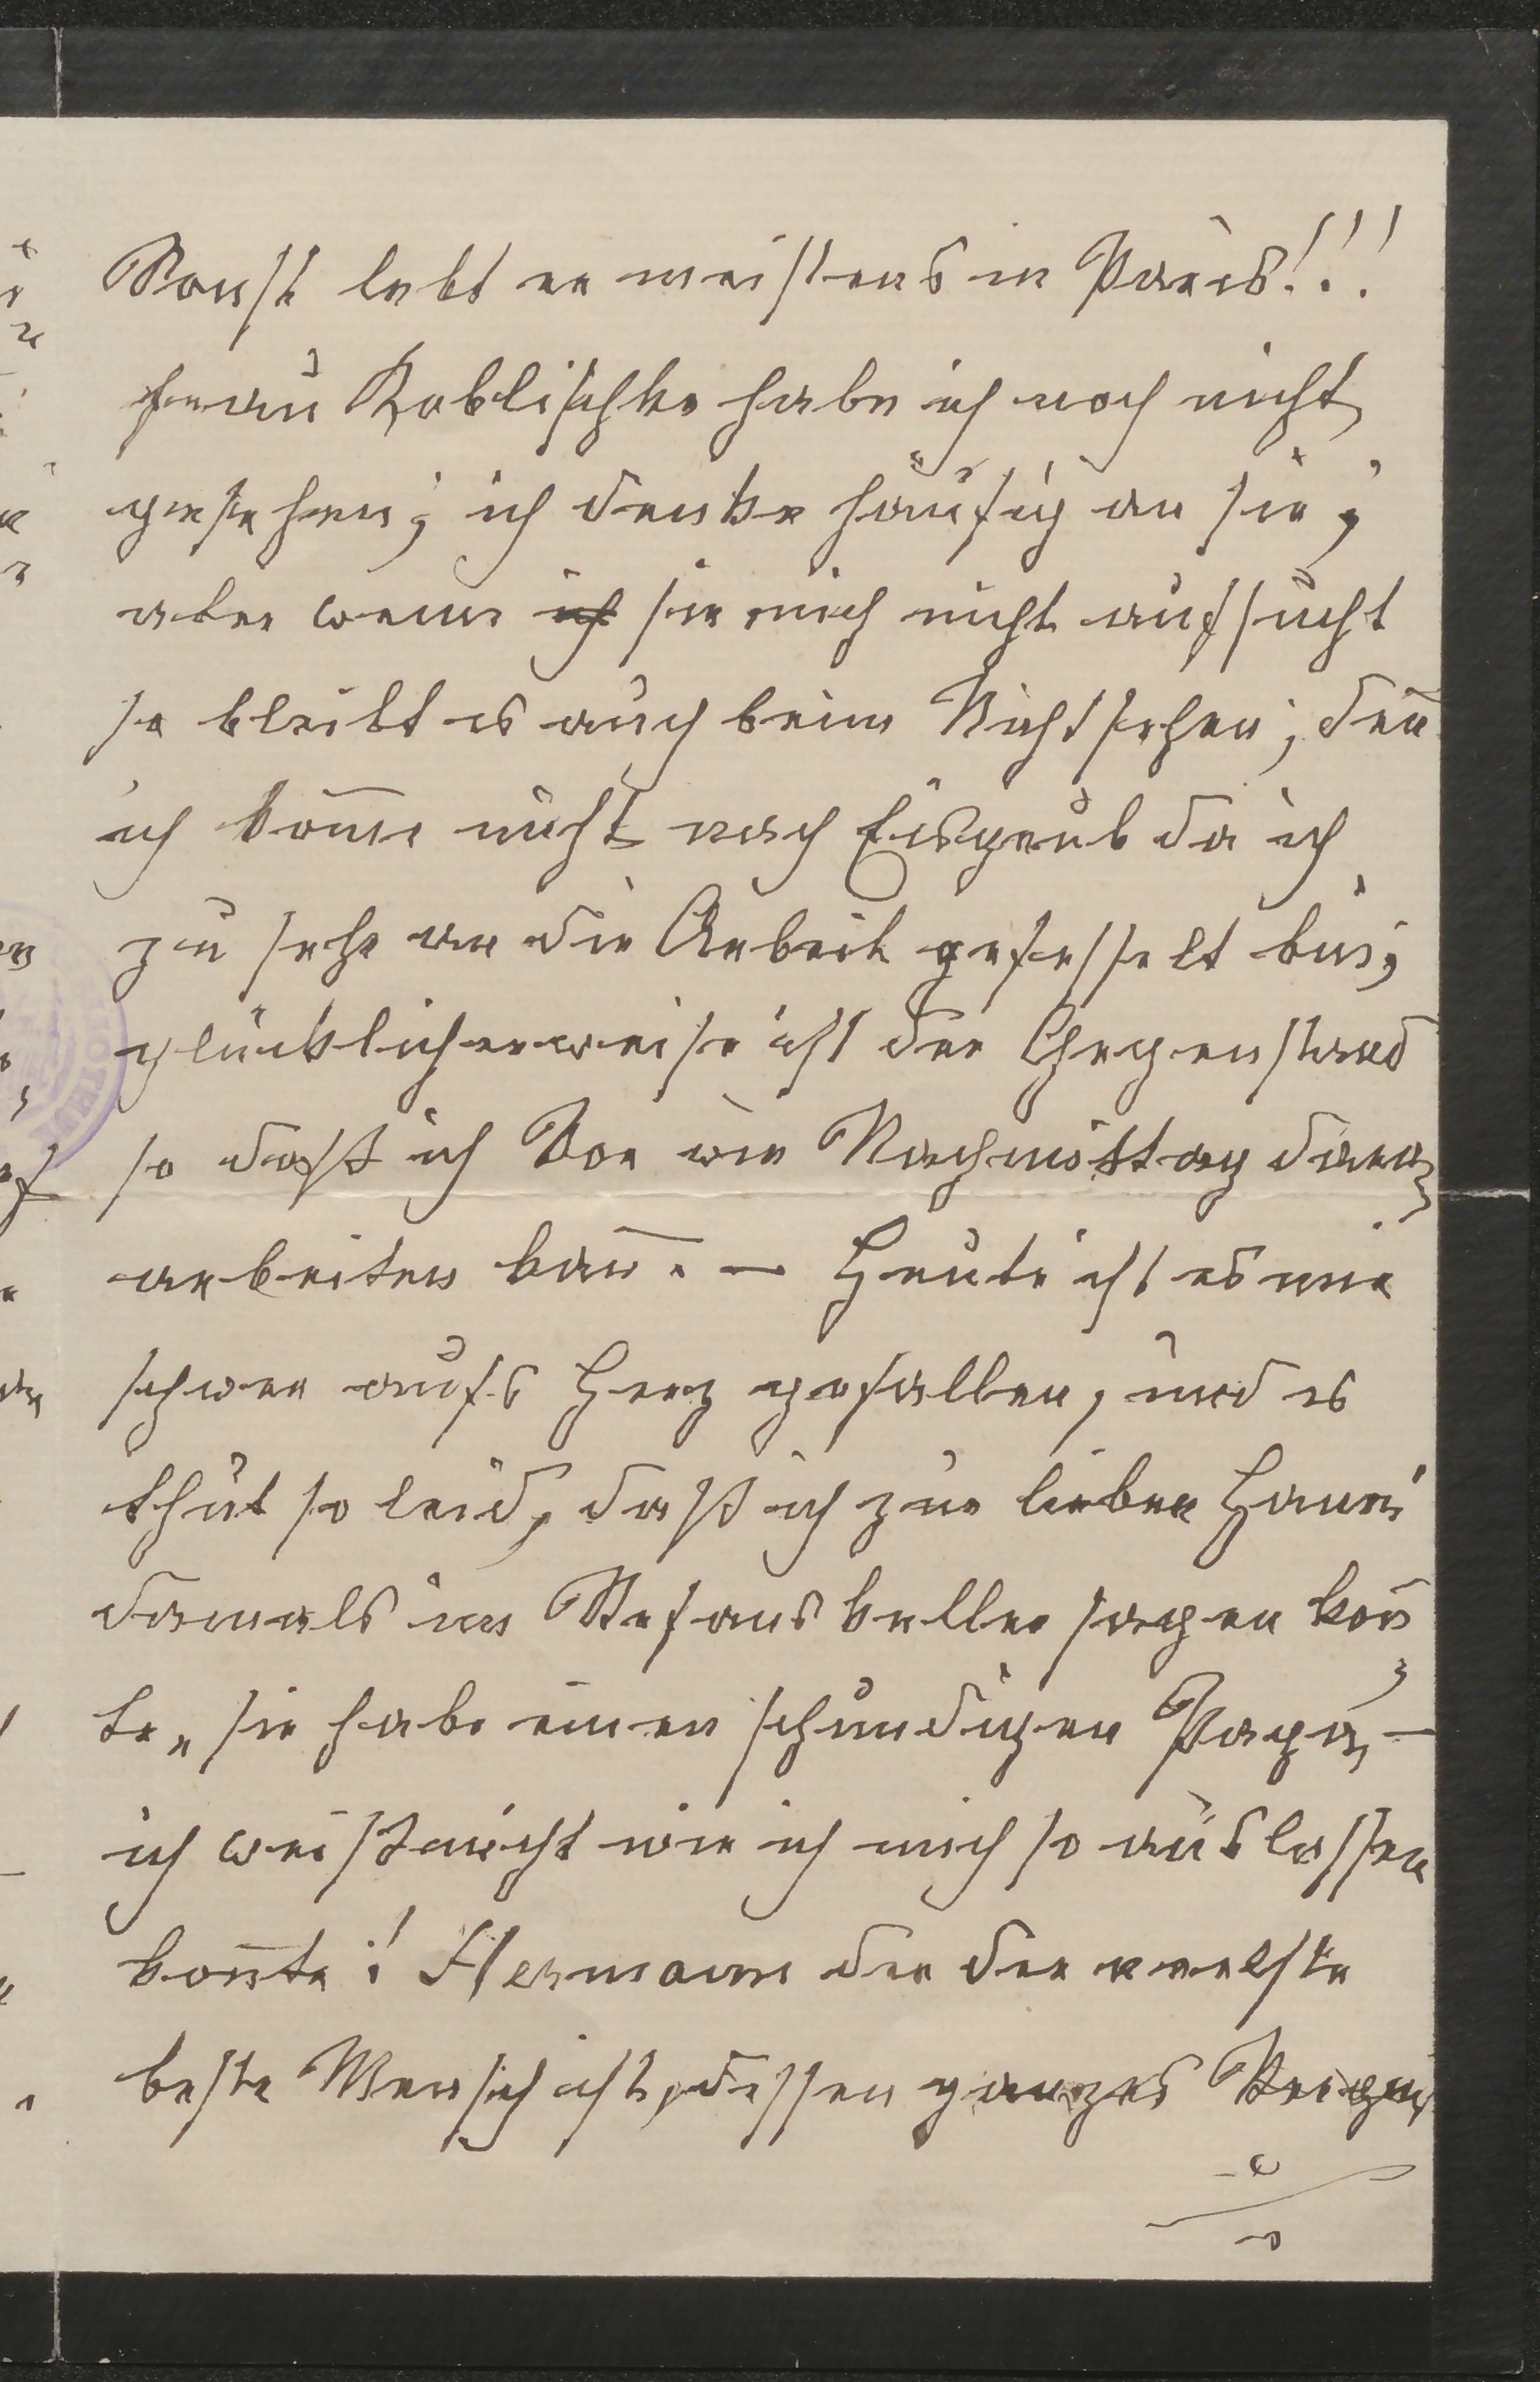 Sonst lebt er meistens in Paris!!!
Frau Koblischke habe ich noch nicht
gesehen; ich denke häufig an sie;
aber wenn ich sie mich nicht aufsucht
so bleibt es auch beim Nichtsehen; deñ
ich kom̄e nicht nach Eisgrub da ich
zu sehr an die Arbeit gefesselt bin;
glücklicherweise ist der Gegenstand
so daß ich Vor wie Nachmittag daran
arbeiten kañ. – Heute ist es mir
schwer aufs Herz gefallen, und es
thut so leid, daß ich zur lieben Hanni
damals im Stefanskeller sagen koñ
te, sie habe einen schundigen Papa, –
ich weiß nicht wie ich mich so auslassen
koñte! Hermann der der
beste Mensch ist, dessen ganzes